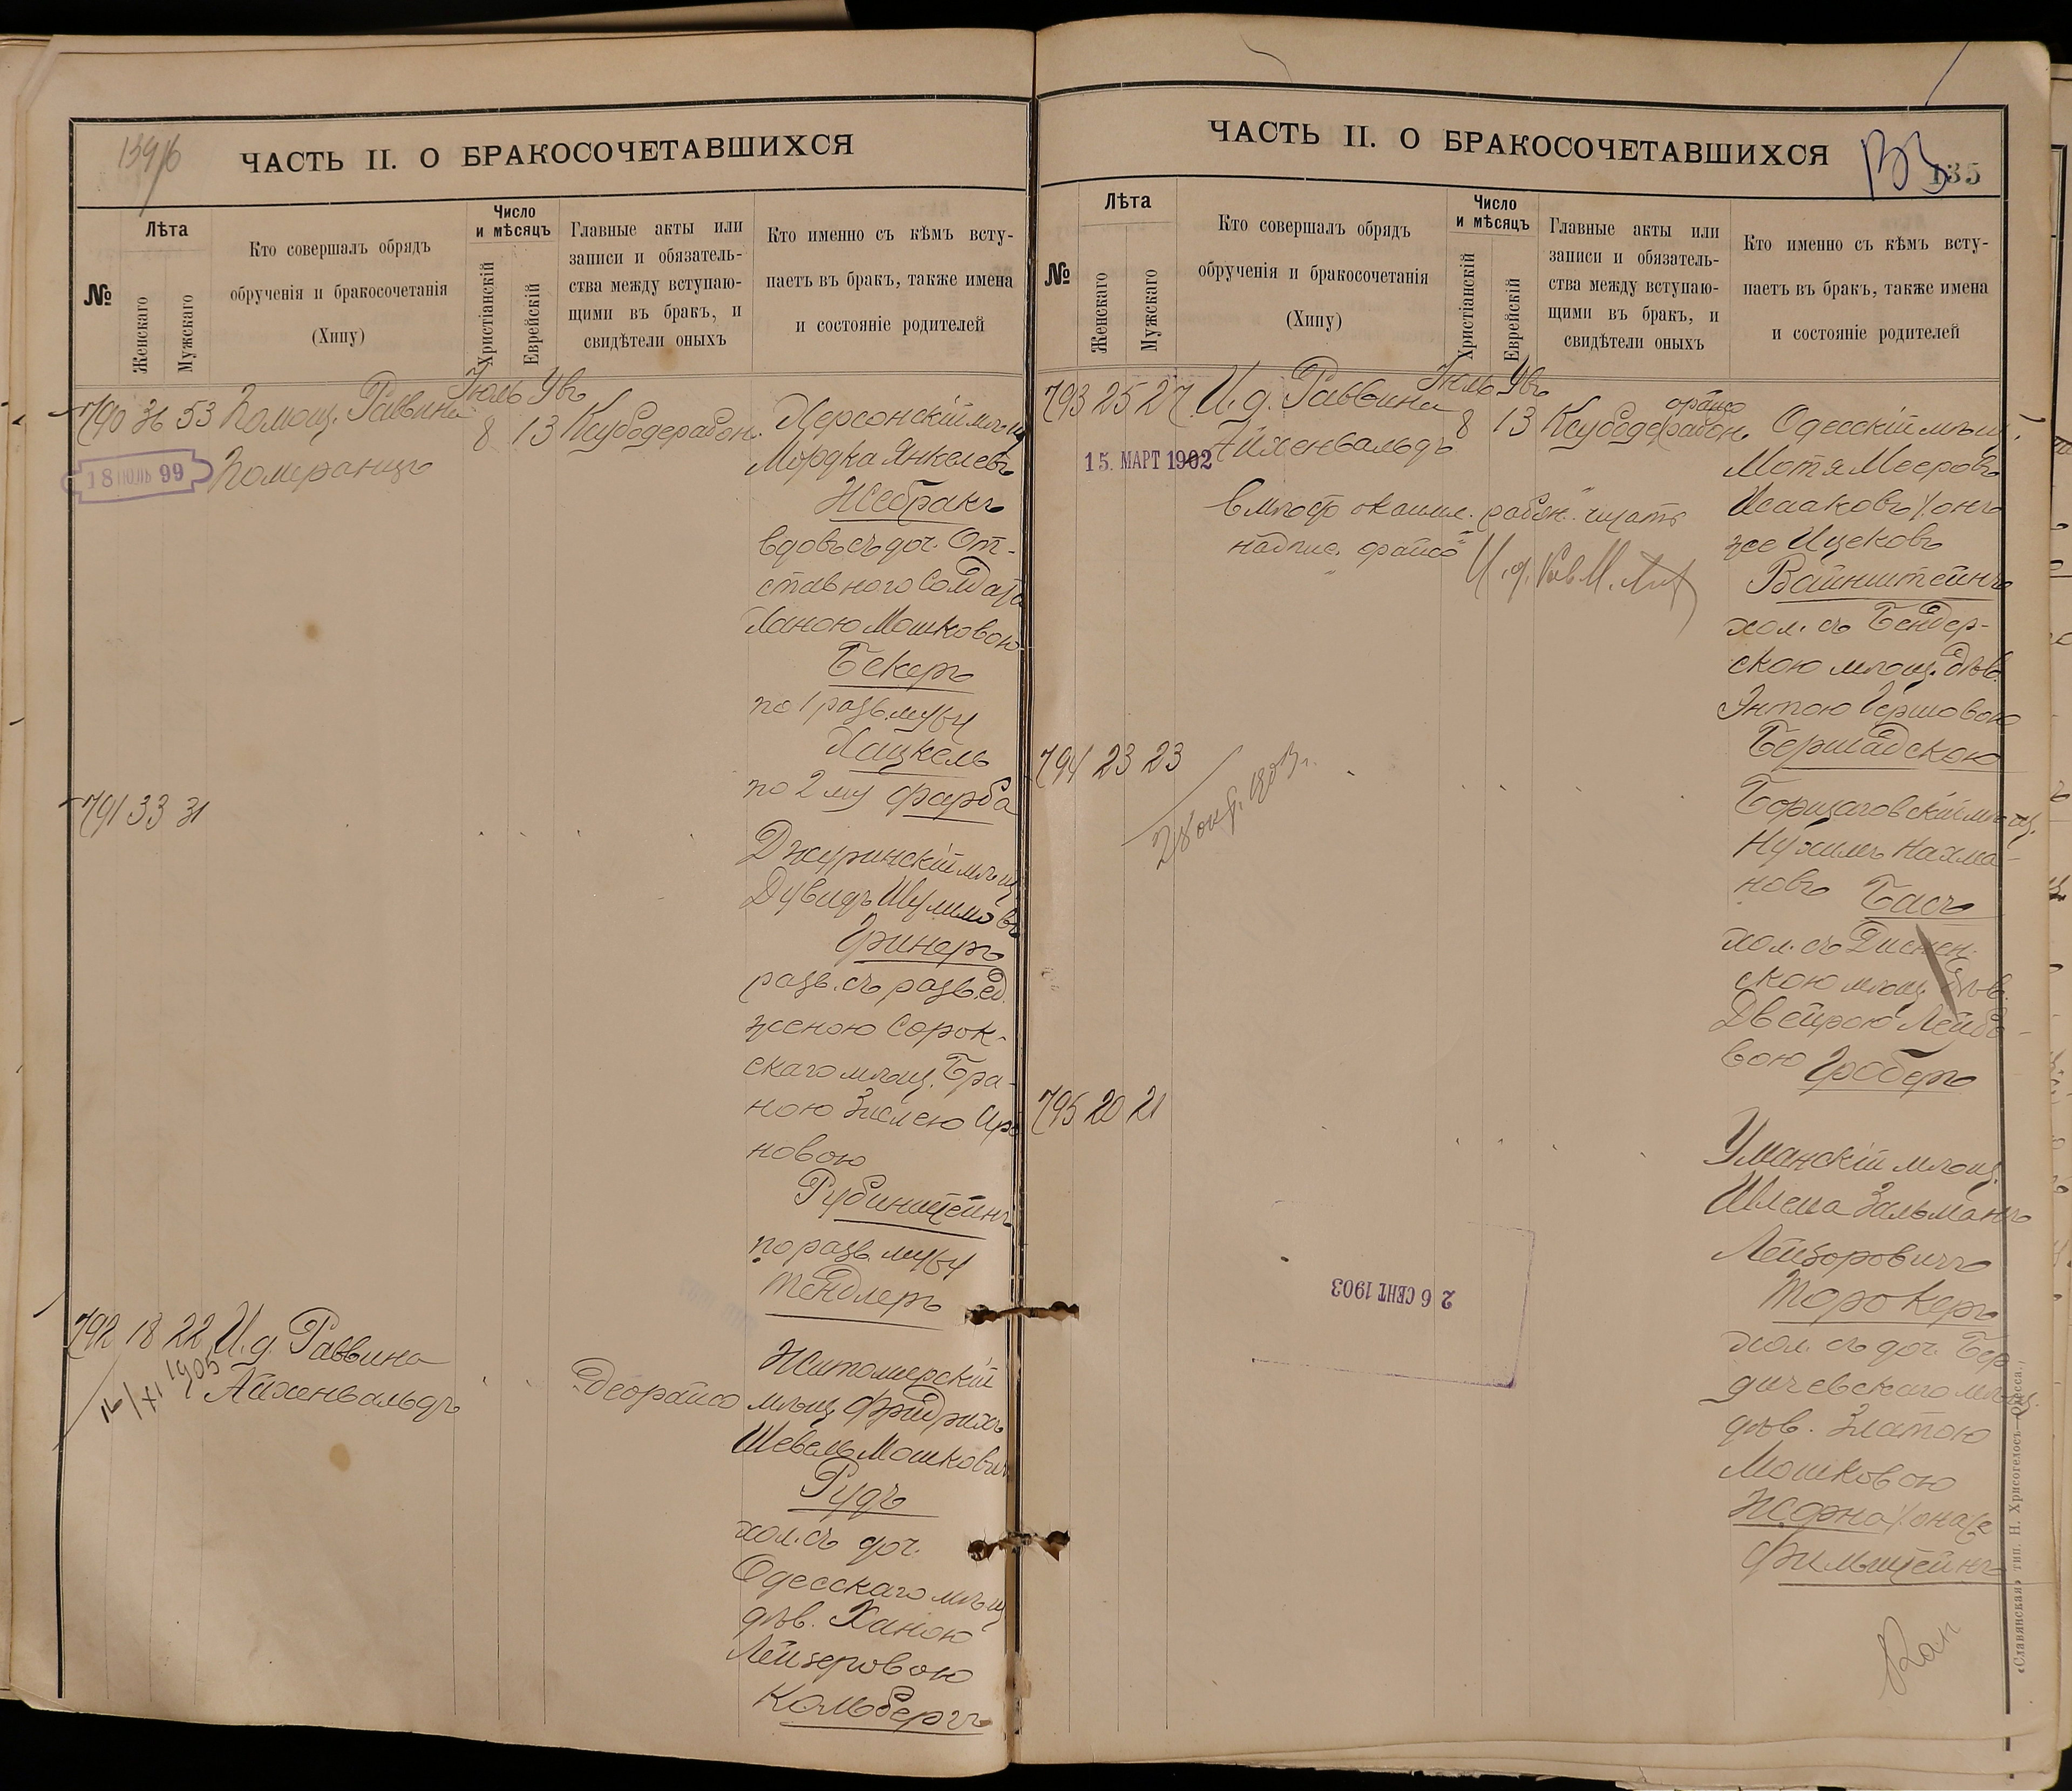 139/6
ЧАСТЬ II. О БРАКОСОЧЕТАВШИХСЯ
№
Лѣта
Женскаго
Мужскаго
Кто совершалъ обрядъ
обрученія и бракосочетанія
(Хипу)
Число
и мѣсяцъ
Христіанскій
Еврейскій
Главные акты или
записи и обязатель-
ства между вступаю-
щими въ бракъ, и
свидѣтели оныхъ
Кто именно съ кѣмъ всту-
паетъ въ бракъ, также имена
и состояніе родителей
790 36 53 Помощ. Раввина
Померанцъ
Іюль Увъ
8 13 Ксубедерабон.
18 ІЮЛЬ 99
Херсонскій мѣщ
Мордка Янкелевъ
Жебракъ
вдовъ съ доч. От-
ставного Солдата
Ханою Мошковою
Бекеръ
по 1 разв. мужу
Хацкель
по 2 му Фарба
791 33 31
Джуринскій мѣщ
Дувидъ Шулимовъ
Гринеръ
разв. съ развед.
женою Сорок-
скаго мѣщ. Бра-
ною Зислею
новою
Рубинштейнъ
по разв. мужу
Тендлеръ
792 18 22 И. д. Раввина
Айхенвальдъ
16/XI 1905
Деорайсо
Житомерскій
мѣщ. Фридрихъ
Шевель Мошкович
Рудъ
хол. съ доч.
Одесскаго мѣщ
дѣв. Ханою
Лейзеровою
Кольбергъ
ЧАСТЬ II. О БРАКОСОЧЕТАВШИХСЯ
135
№
Лѣта
Женскаго
Мужскаго
Кто совершалъ обрядъ
обрученія и бракосочетанія
(Хипу)
Число
и мѣсяцъ
Христіанскій
Еврейскій
Главные акты или
записи и обязатель-
ства между вступаю-
щими въ бракъ, и
свидѣтели оныхъ
Кто именно съ кѣмъ всту-
паетъ въ бракъ, также имена
и состояніе родителей
793 25 27 И. д. Раввина
Айхенвальдъ
Іюль Увъ
8 13 Ксубеде рабон.
орайсо
15. МАРТ 1902
рабон. читать
надпис. орайсо
Одесскій мѣщ.
Мотя Мееровъ
Исааковъ/онъ
же Ицековъ
Вайнштейнъ
хол. съ Бендер-
скою мѣщ. дѣв.
Энтою Гершовою
Бершадскою
794 23 23
28 окт. 1903 г.
Борщаговскій мѣщ.
Нухимъ Нахма-
новъ Басъ
хол. съ Диснен-
скою мѣщ. дѣв.
Двейрою Лейбо-
вою Гроберъ
795 20 21
26 СЕНТ 1903
Уманскій мѣщ.
Шлема Зальманъ
Лейзоровичъ
Торокеръ
хол. съ доч. Бер
дичевскаго мѣщ.
дѣв. Златою
Мошковою
Фильштейнъ
«Славянская» тип. Н. Хрисогелосъ—Одесса.